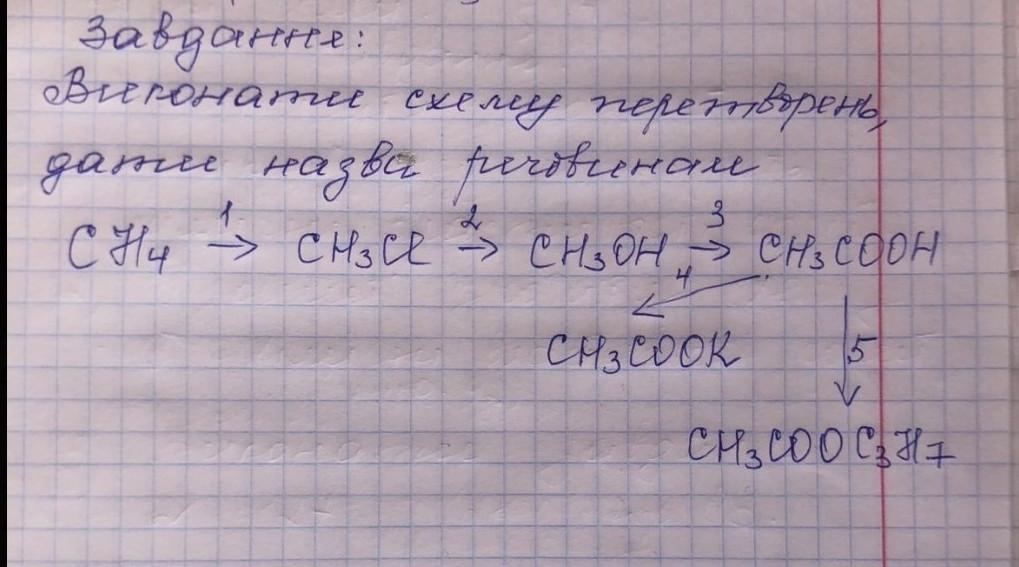 Завдання:
Виконати схему перетворень,
дати назви речовинам
CH4 1→ CH3Cl 2→ CH3OH 3→ CH3COOH
4
CH3COOK 5
CH3COOC3H7